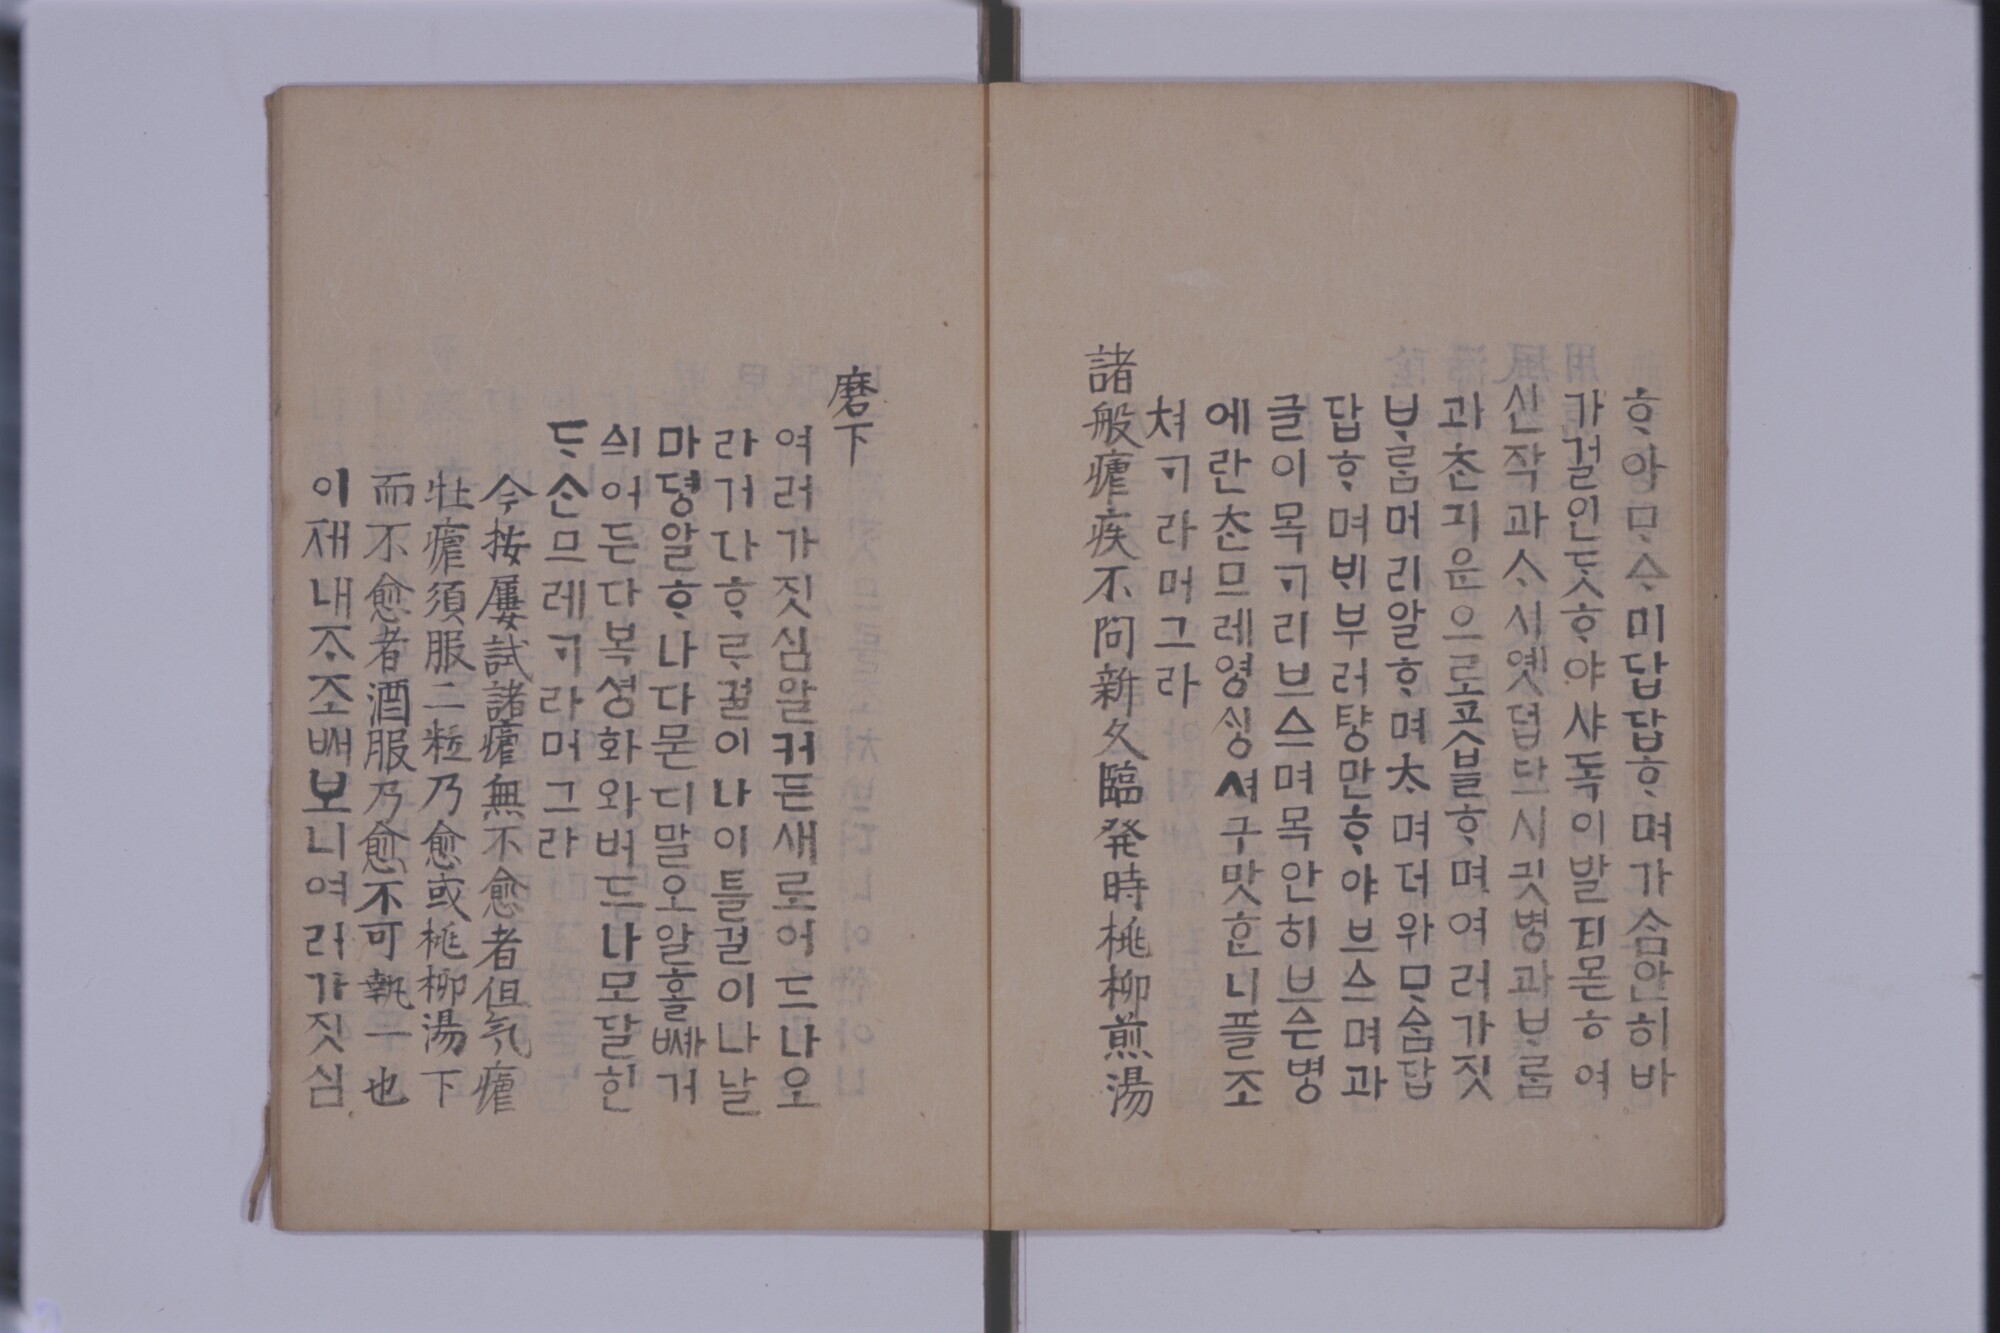 ᄒᆞ야ᄆᆞᅀᆞ미답답ᄒᆞ며가ᄉᆞᆷ안히바
가걸인ᄃᆞᆺᄒᆞ야샤독이발티몯ᄒᆞ여
신작과ᄉᆞ시옛덥단시긧병과ᄇᆞᄅᆞᆷ
과ᄎᆞᆫ긔운으로곳블ᄒᆞ며여러가짓
ᄇᆞᄅᆞᆷ머리알ᄒᆞ며ᄎᆞ며더위ᄆᆞᅀᆞᆷ답
답ᄒᆞ며ᄇᆡ부러턍만ᄒᆞ야브ᅀᅳ며과
글이목ᄭᅮ리브ᅀᅳ며목안히브ᅀᅳᆫ병
에란ᄎᆞᆫ므레영싱셔구맛ᄒᆞᆫ니플조
쳐ᄀᆞ라머그라
諸般瘧疾不問新久臨発時桃柳煎湯
磨下
여러가짓심알커든새로어드나오
라거다ᄒᆞᄅᆞ걸이나이틀걸이나날
마뎡알ᄒᆞ나다몯디말오알홀ᄣᅢ거
싀어든다복셩화와버드나모달힌
ᄃᆞᄉᆞᆫ므레ᄀᆞ라머그라
今按屢試諸瘧無不愈者但気瘧
牡瘧須服二粒乃愈或桃柳湯下
而不愈者酒服乃愈不可執一也
이재내ᄌᆞ조ᄡᅥ보니여러가짓심